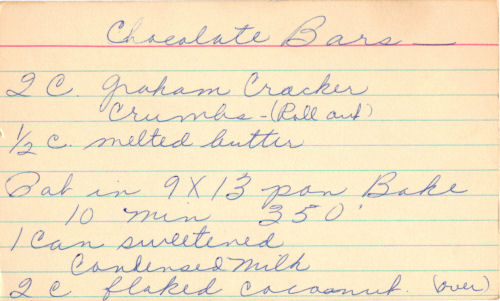 Chocolate Bars —
2 C. graham Cracker
Crumbs - (Roll out)
1/2 c. melted butter
Pat in 9X13 pan Bake
10 min 350°
1 Can sweetened
Condensed Milk
2 c flaked cocoanut. (over)